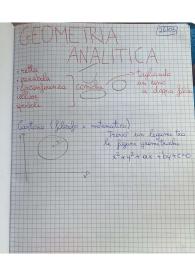 GEOMETRIA
ANALITICA
• retta
• parabola
• circonferenza
• ellisse
• iperbole
coniche
tagliando
un cono
a doppia falda
Cartesio (filosofo e matematico)
Trovò un legame tra
le figure geometriche
x² + y² + ax + by + c = 0